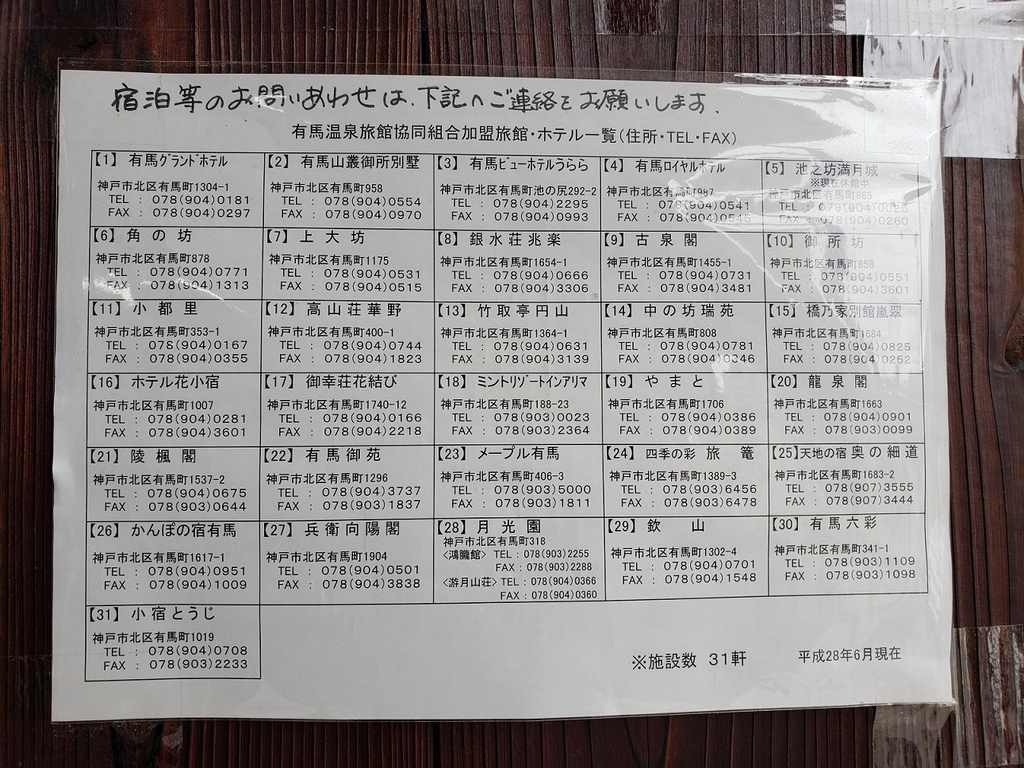 宿泊等のお問いあわせは、下記へご連絡をお願いします.
有馬温泉旅館協同組合加盟旅館・ホテル一覧(住所・TEL・FAX)
【1】 有馬グランドホテル
神戸市北区有馬町1304-1
TEL : 078(904)0181
FAX : 078(904)0297
【2】 有馬山叢御所別墅
神戸市北区有馬町958
TEL : 078(904)0554
FAX : 078(904)0970
【3】 有馬ビューホテルうらら
神戸市北区有馬町池の尻292-2
TEL : 078(904)2295
FAX : 078(904)0993
【4】 有馬ロイヤルホテル
神戸市北区有馬町987
TEL : 078(904)0541
FAX : 078(904)0545
【5】 池之坊満月城
※現在休館中
神戸市北区有馬町868
TEL : 078(904)0025
FAX : 078(904)0260
【6】 角の坊
神戸市北区有馬町878
TEL : 078(904)0771
FAX : 078(904)1313
【7】 上大坊
神戸市北区有馬町1175
TEL : 078(904)0531
FAX : 078(904)0515
【8】 銀水荘兆楽
神戸市北区有馬町1654-1
TEL : 078(904)0666
FAX : 078(904)3306
【9】 古泉閣
神戸市北区有馬町1455-1
TEL : 078(904)0731
FAX : 078(904)3481
【10】 御所坊
神戸市北区有馬町858
TEL : 078(904)0551
FAX : 078(904)3601
【11】 小都里
神戸市北区有馬町353-1
TEL : 078(904)0167
FAX : 078(904)0355
【12】 高山荘華野
神戸市北区有馬町400-1
TEL : 078(904)0744
FAX : 078(904)1823
【13】 竹取亭円山
神戸市北区有馬町1364-1
TEL : 078(904)0631
FAX : 078(904)3139
【14】 中の坊瑞苑
神戸市北区有馬町808
TEL : 078(904)0781
FAX : 078(904)0346
【15】 橋乃家別館嵐翠
神戸市北区有馬町1684
TEL : 078(904)0825
FAX : 078(904)0252
【16】 ホテル花小宿
神戸市北区有馬町1007
TEL : 078(904)0281
FAX : 078(904)3601
【17】 御幸荘花結び
神戸市北区有馬町1740-12
TEL : 078(904)0166
FAX : 078(904)2218
【18】 ミントリゾートインアリマ
神戸市北区有馬町188-23
TEL : 078(903)0023
FAX : 078(903)2364
【19】 やまと
神戸市北区有馬町1706
TEL : 078(904)0386
FAX : 078(904)0389
【20】 龍泉閣
神戸市北区有馬町1663
TEL : 078(904)0901
FAX : 078(903)0099
【21】 陵楓閣
神戸市北区有馬町1537-2
TEL : 078(904)0675
FAX : 078(903)0644
【22】 有馬御苑
神戸市北区有馬町1296
TEL : 078(904)3737
FAX : 078(903)1837
【23】 メープル有馬
神戸市北区有馬町406-3
TEL : 078(903)5000
FAX : 078(903)1811
【24】 四季の彩 旅篭
神戸市北区有馬町1389-3
TEL : 078(903)6456
FAX : 078(903)6478
【25】天地の宿 奥の細道
神戸市北区有馬町1683-2
TEL : 078(907)3555
FAX : 078(907)3444
【26】 かんぽの宿有馬
神戸市北区有馬町1617-1
TEL : 078(904)0951
FAX : 078(904)1009
【27】 兵衛向陽閣
神戸市北区有馬町1904
TEL : 078(904)0501
FAX : 078(904)3838
【28】 月光園
神戸市北区有馬町318
<鴻朧館> TEL : 078(903)2255
FAX : 078(903)2288
<游月山荘> TEL : 078(904)0366
FAX : 078(904)0360
【29】 欽山
神戸市北区有馬町1302-4
TEL : 078(904)0701
FAX : 078(904)1548
【30】 有馬六彩
神戸市北区有馬町341-1
TEL : 078(903)1109
FAX : 078(903)1098
【31】 小宿とうじ
神戸市北区有馬町1019
TEL : 078(904)0708
FAX : 078(903)2233
※施設数 31軒
平成28年6月現在